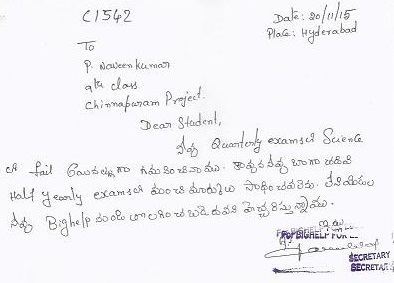 C1542
Date: 20/11/15
Place: Hyderabad
To
P. Naveenkumar
9th class
Chinnapuram Project.
Dear Student,
నీవు Quarterly examsలో Science
లో fail గమనించినాము. కావున నీవు బాగా చదివి
Half yearly examsలో మంచి మార్కులు సాధించవలెను. లేనియెడల
నీవు Bighelp నుండి తొలగించబడుదువని హెచ్చరిస్తున్నాము.
ఇట్లు
For BIGHELP FOR
SECRETARY
SECRETARY